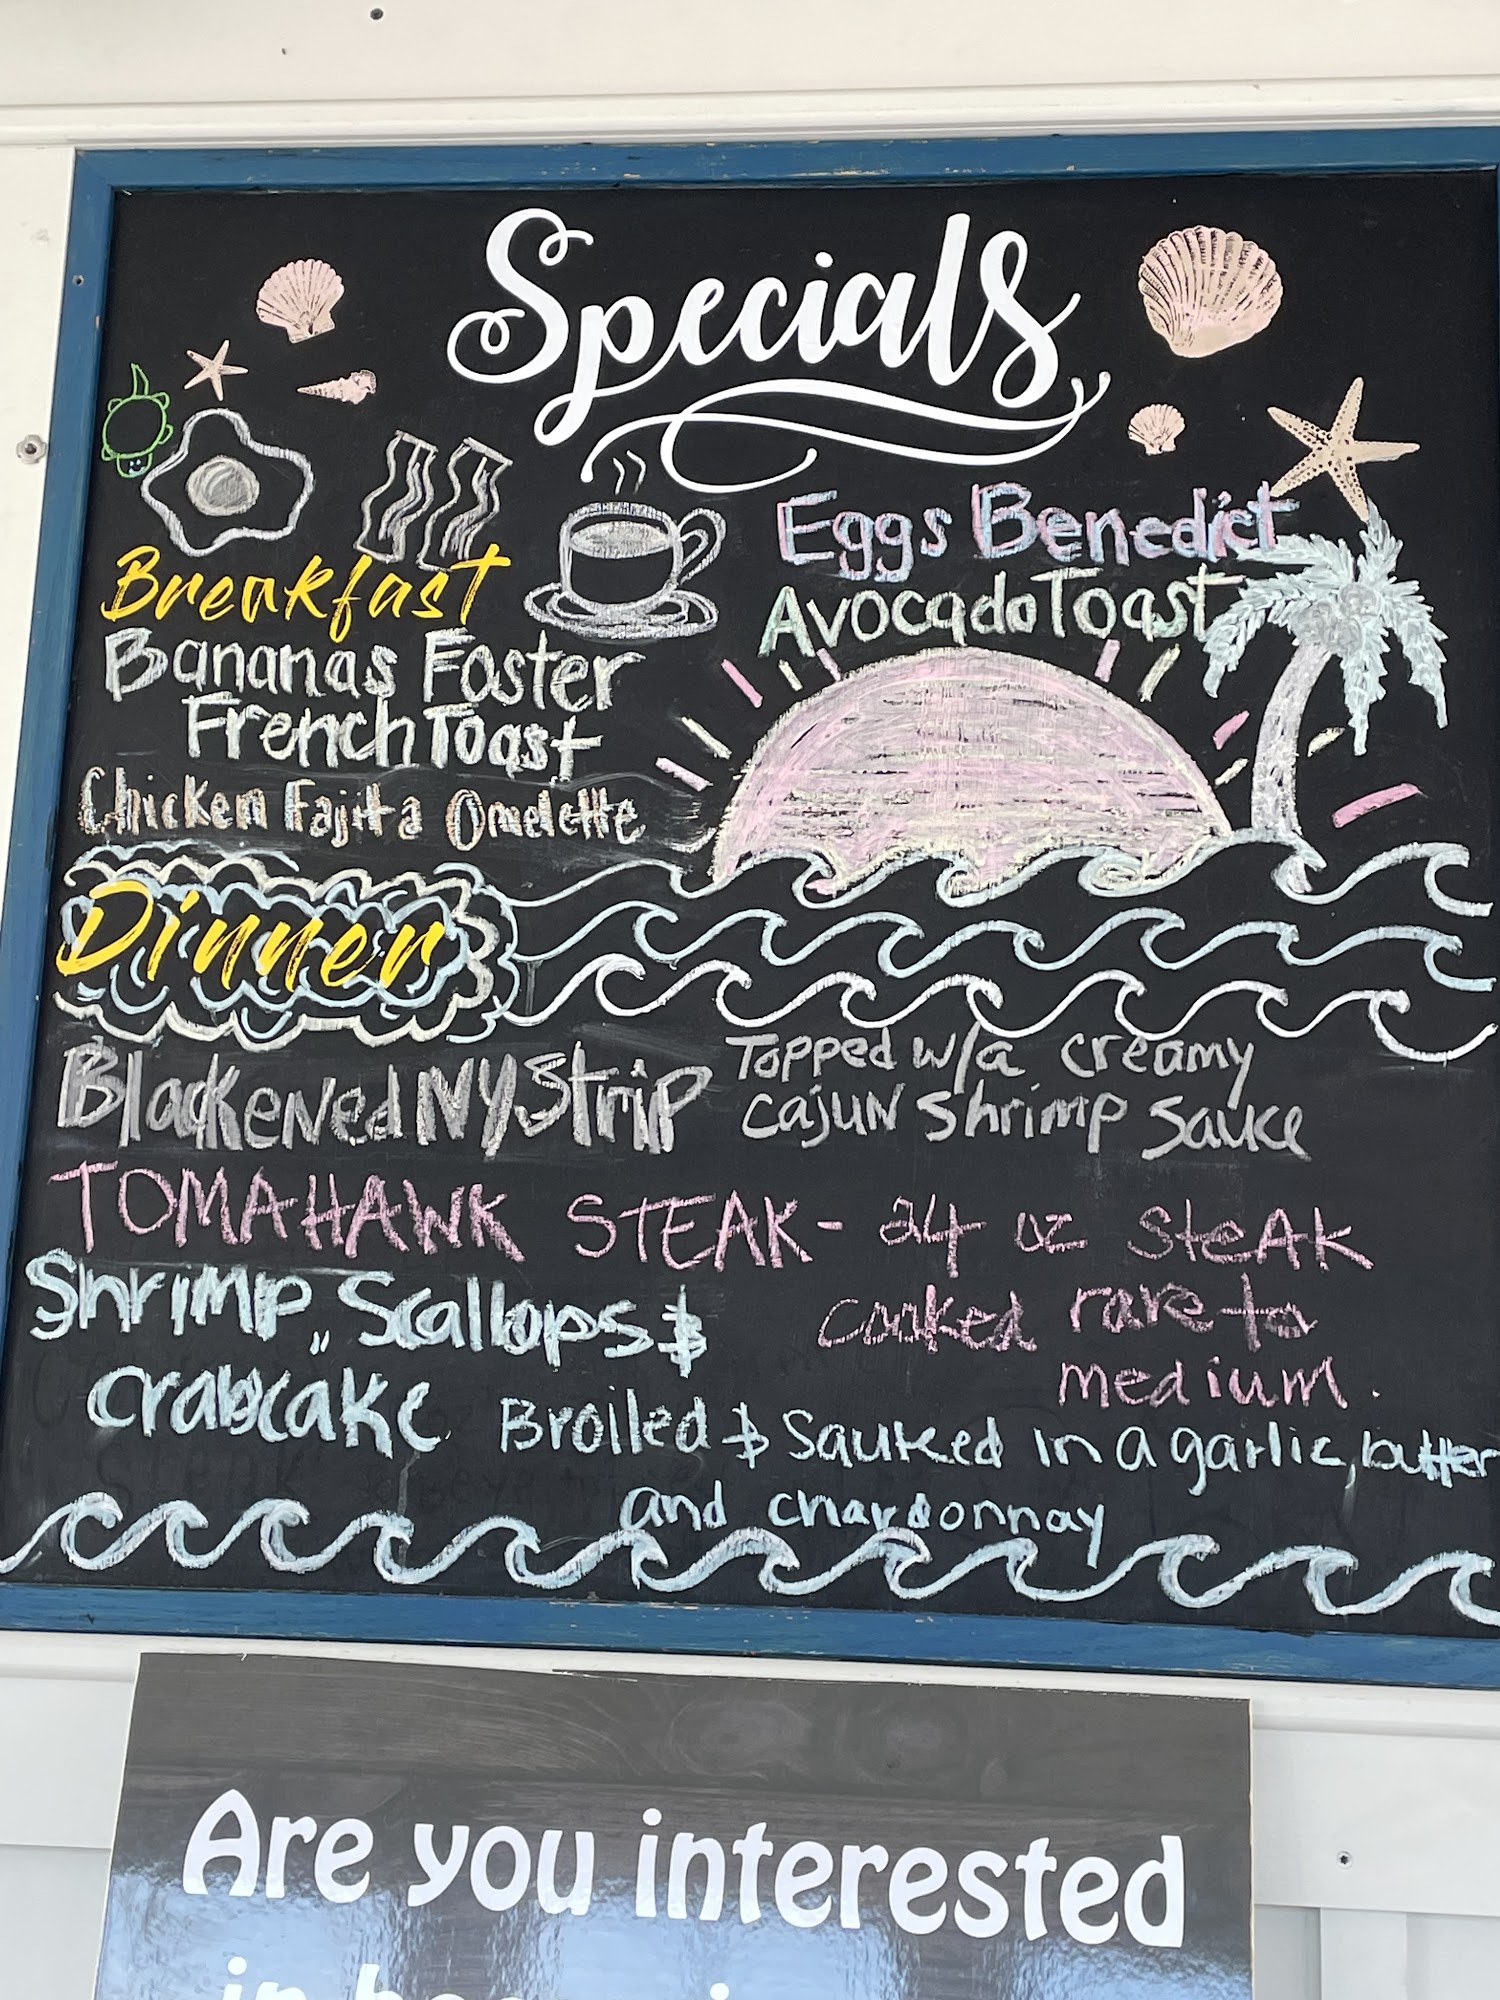 Specials
Breakfast
Bananas Foster
French Toast
Chicken Fajita Omelette
Eggs Benedict
Avocado Toast
Dinner
Blackened NY Strip
Topped w/a creamy
cajun shrimp sauce
TOMAHAWK STEAK - 24 oz steak
cooked rare to
medium.
Shrimp, Scallops &
crabcake
Broiled & Sauteed in a garlic, butter
and chardonnay
Are you interested
in